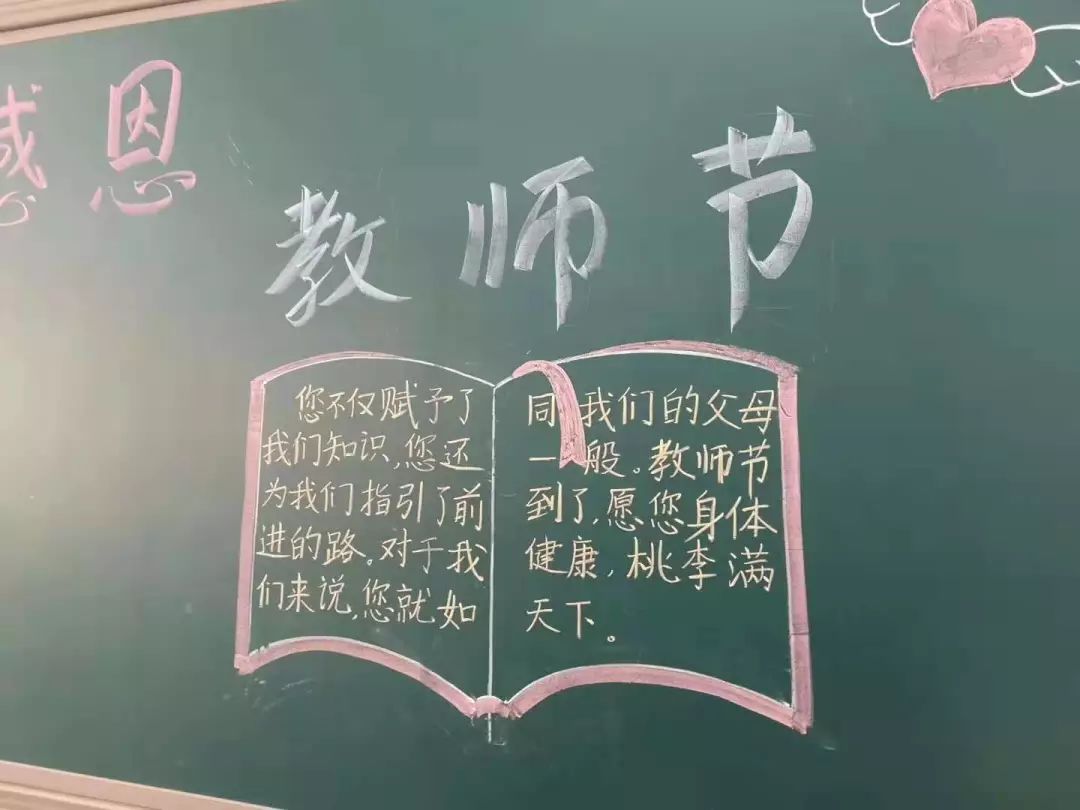 感恩
教师节
您不仅赋予了
我们知识,您还
为我们指引了前
进的路。对于我
们来说,您就如
同我们的父母
一般。教师节
到了,愿您身体
健康,桃李满
天下。